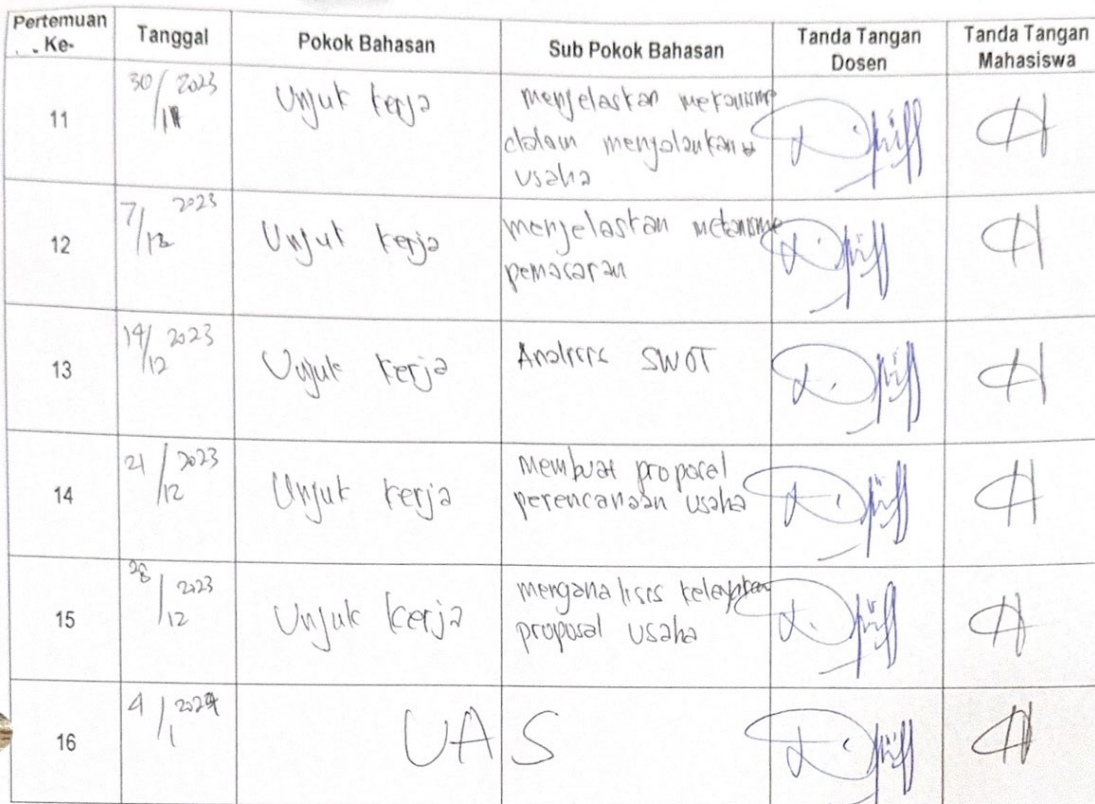 Pertemuan Ke-
Tanggal
Pokok Bahasan
Sub Pokok Bahasan
Tanda Tangan
Dosen
Tanda Tangan
Mahasiswa
11
30/11 2023
Unjuk kerja
menjelaskan mekanisme
dalam menjalankan
usaha
12
7/12 2023
Unjuk kerja
menjelaskan mekanisme
pemasaran
13
14/12 2023
Unjuk kerja
Analisis SWOT
14
21/12 2023
Unjuk kerja
Membuat proposal
perencanaan usaha
15
28/12 2023
Unjuk kerja
menganalisis kelayakan
proposal usaha
16
4/1 2024
UAS